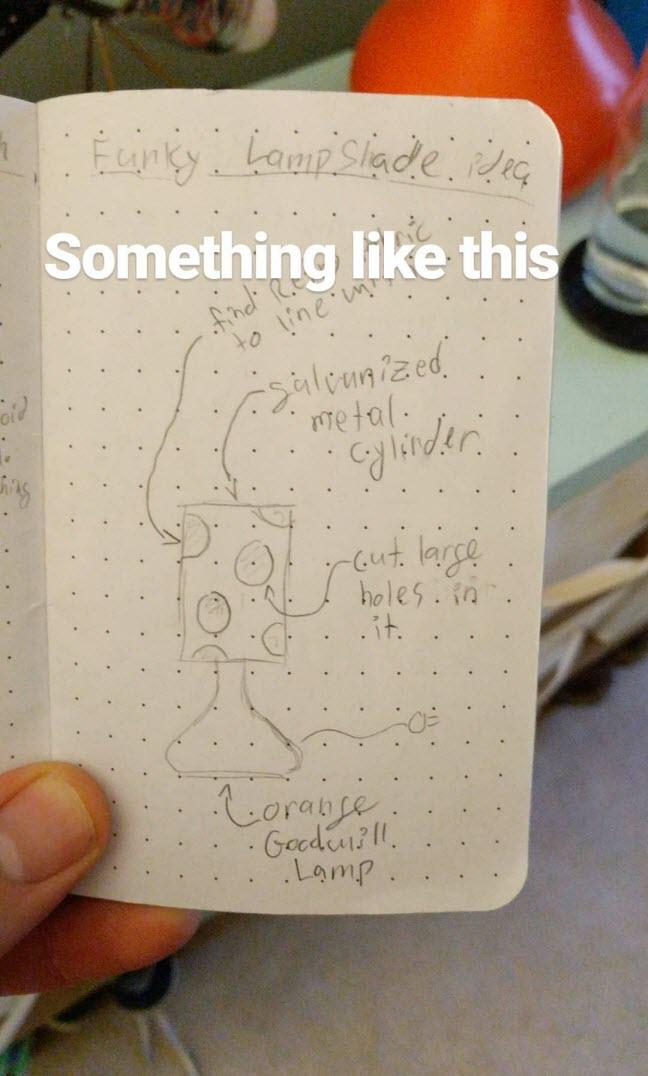 Funky Lamp Shade idea
Something like this
find
to line
galvanized
metal
cylinder
cut large
holes in
it
orange
Goodwill
Lamp
oid
hing